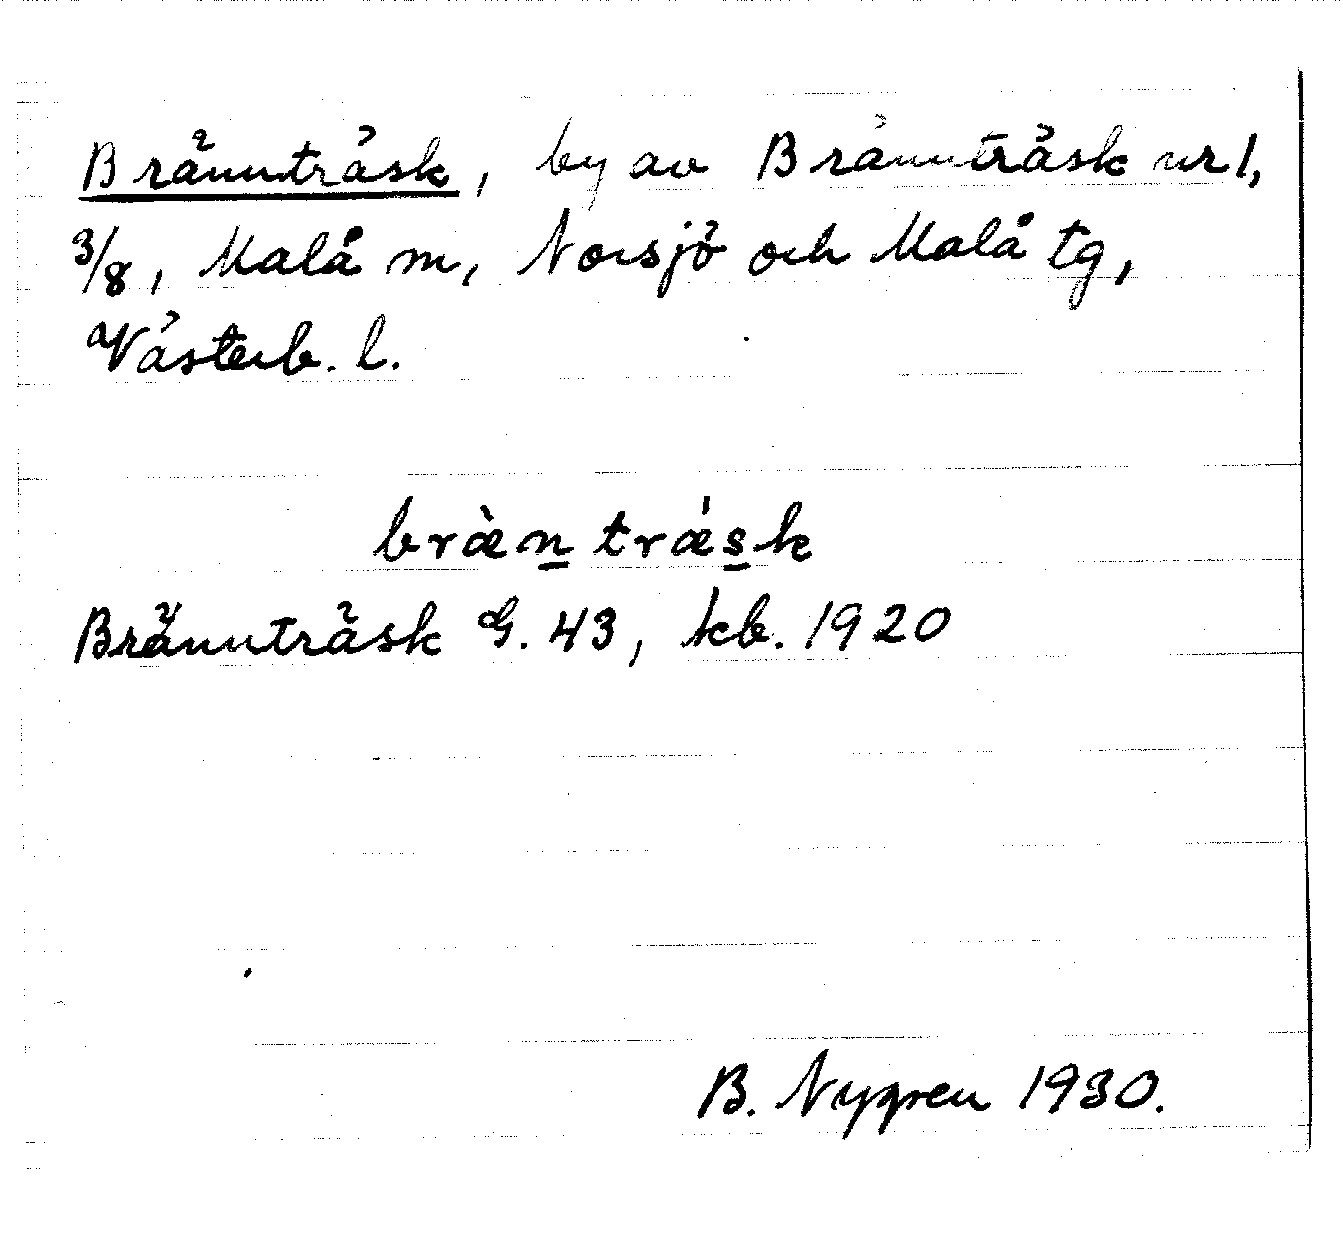 Brännträsk, by av Brännträsk nr 1,
3/8, Malå m, Norsjö och Malå tg,
Västerb. l.
bræ̀n trǽsk
Brännträsk G. 43, kb. 1920
B. Nygren 1930.